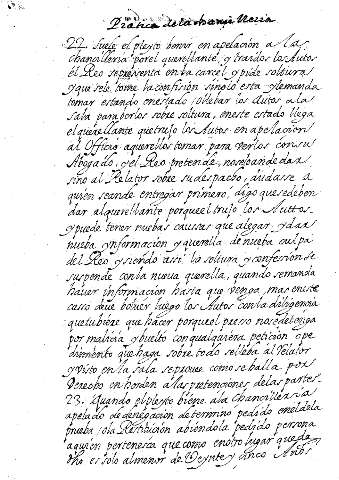 Pratica de la chansilleria
22. Suele el pleyto benir en apelacion a la
chancilleria por el querellante, y traidos los Autos
el Reo se presenta en la carcel, y pide soltura
y que se le tome la confision sino lo esta, y le manda
tomar estando en estado, o llebar los Autos a la
sala para berlos sobre soltura, en este estado llega
el querellante que trujo los Autos en apelacion
al Officio, a querellos tomar para verlos con su
Abogado, y el Reo pretende, no se an de dar
sino al Relator sobre su despacho, dudase a
quien se an de entregar primero, digo que se deben
dar al querellante porque el trujo los Auttos
y puede tener nuebas causas que alegar, y dar
nueba ynformacion y querella de nueba culpa
del Reo, y siendo assi la soltura y confesion se
suspende con la nueva querella, quando se manda
haver informacion hasta que venga, mas en este
caso deve bolver luego los Autos con la diligencia
que tubiere que hacer porque el preso no se detenga
por malicia, y buelto con qualquiera peticion o pe
dimento que haga sobre todo se lleba al Relator
y visto en la sala se provee como se halla por
Derecho en horden a las pretenciones de las partes.
23. Quando el pleyto biene a la Chancilleria
apelado de denegacion de termino pedido en el de la
prueba, o la Restitucion abiendola pedido persona
a quien pertenesca que como en otro lugar queda
dho es solo al menor de Veynte y cinco Años